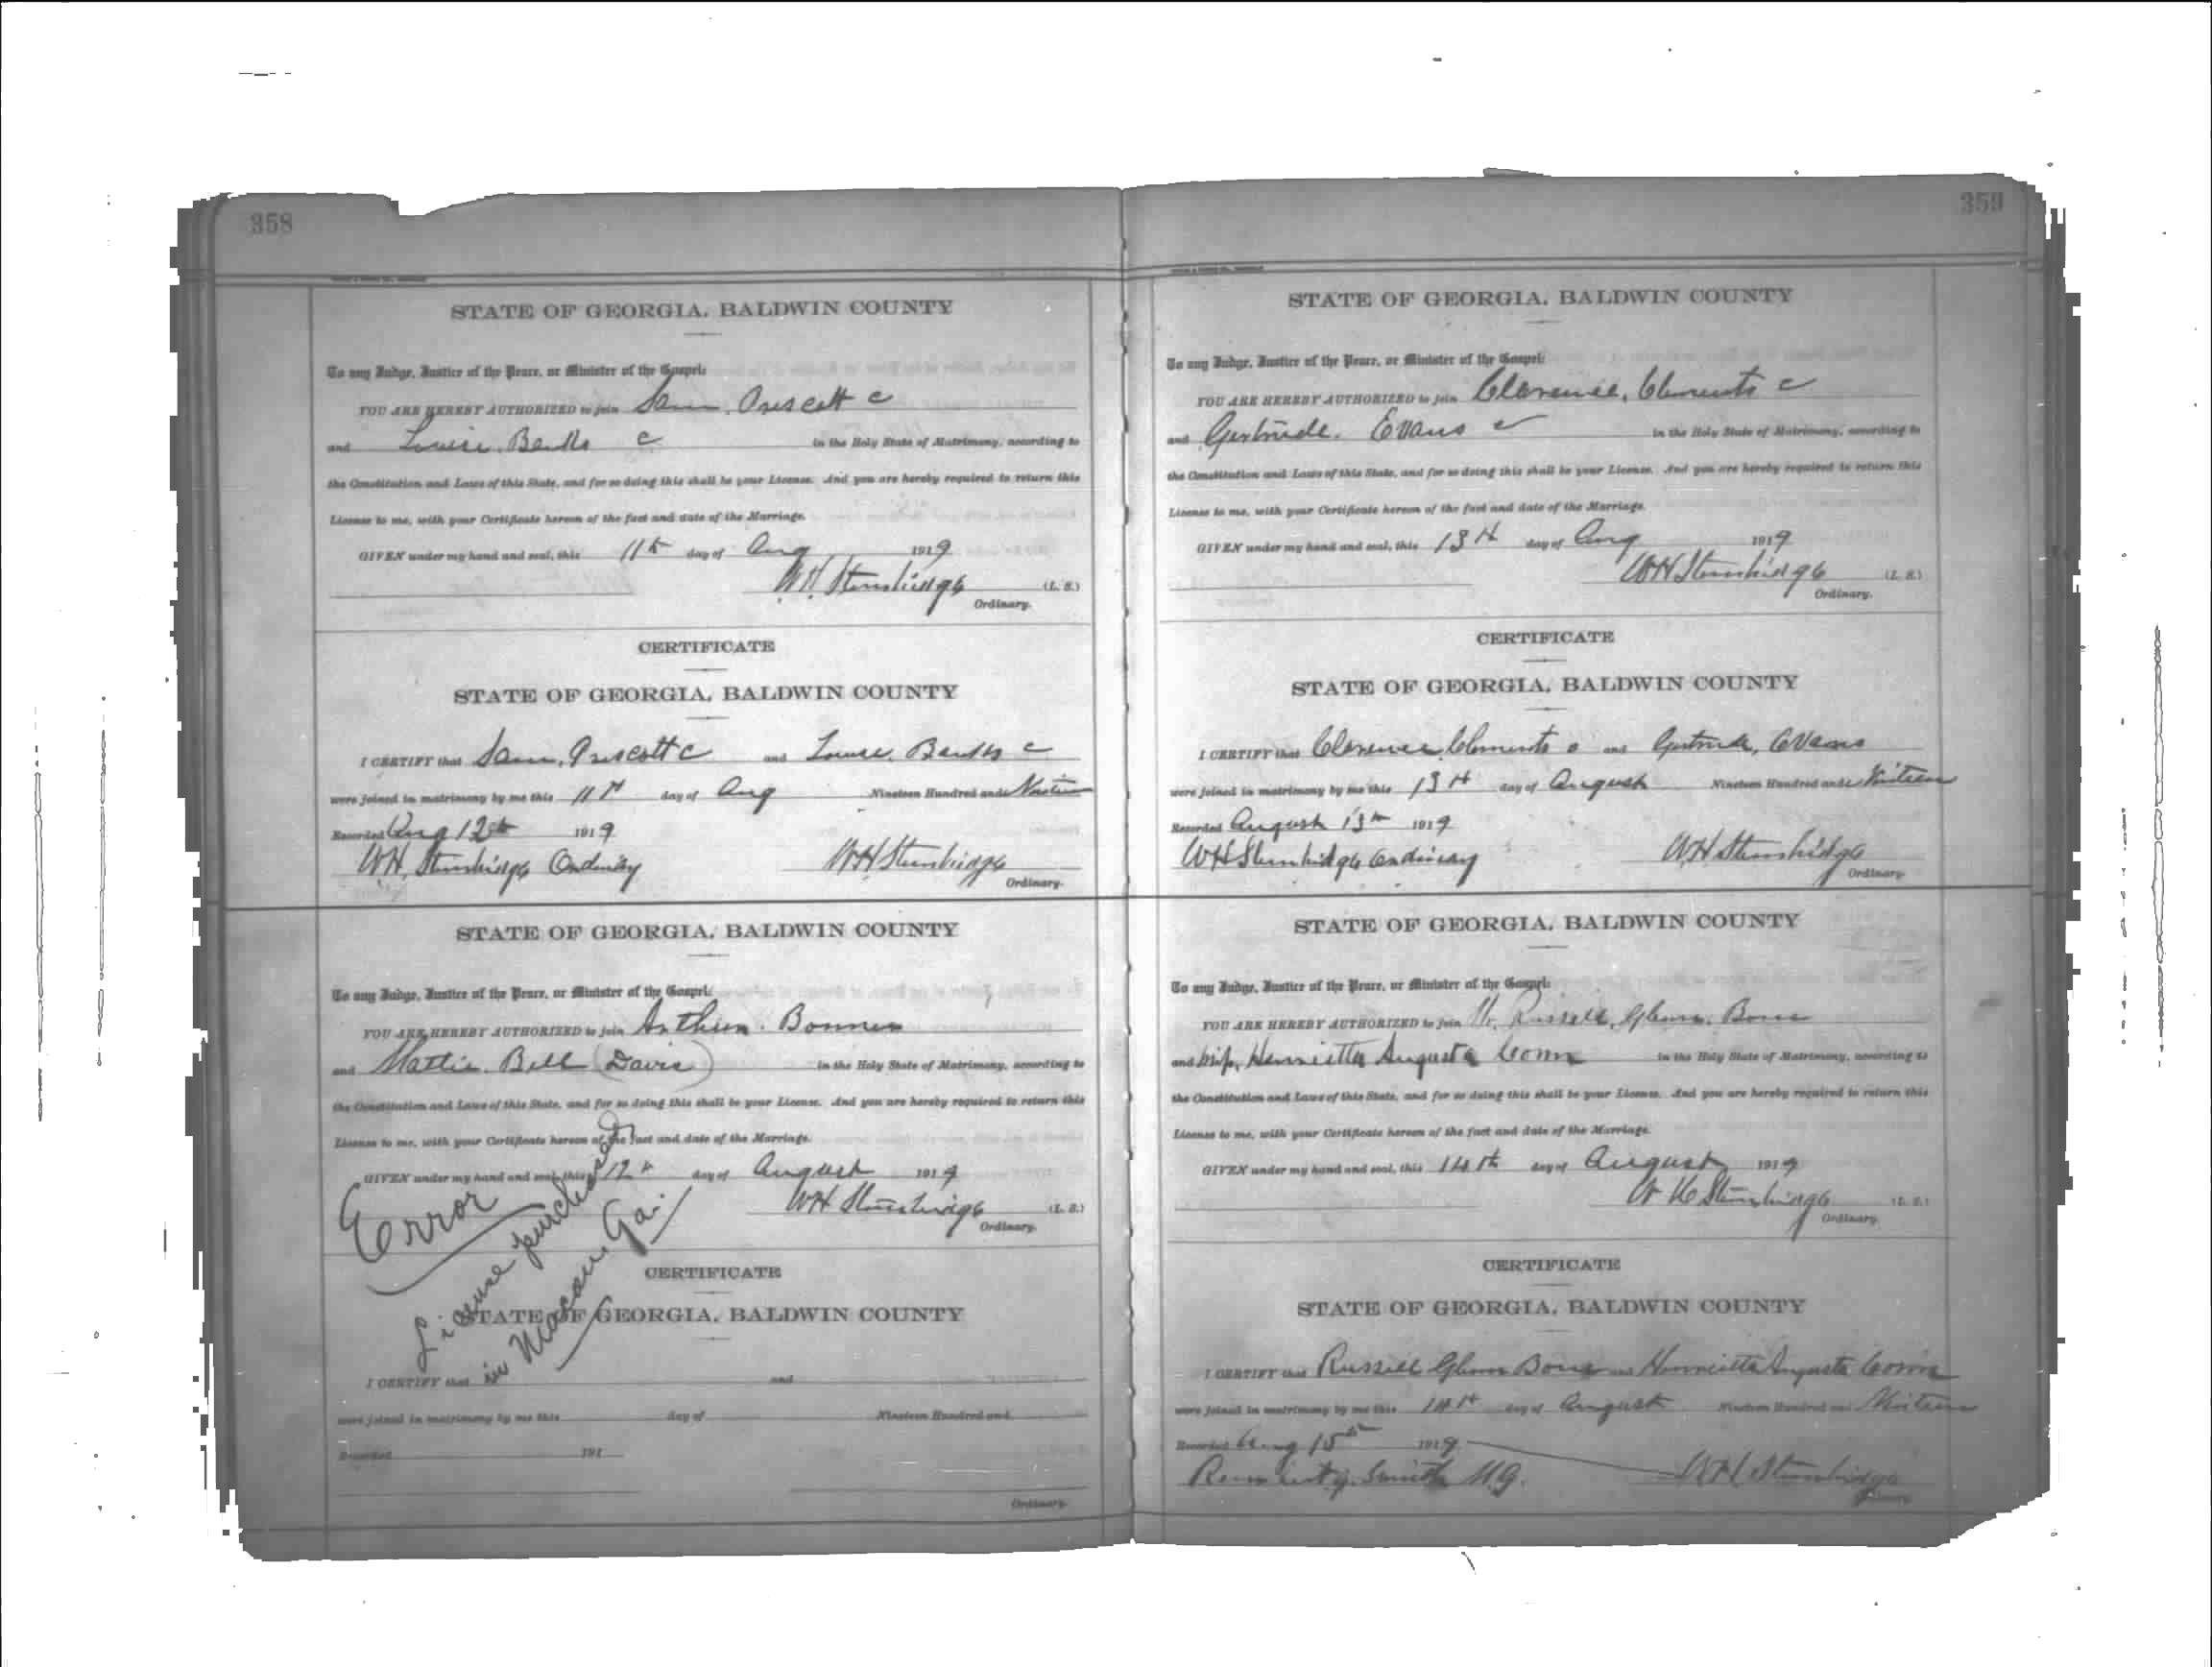 358
STATE OF GEORGIA, BALDWIN COUNTY
To any Judge, Justice of the Peace, or Minister of the Gospel:
YOU ARE HEREBY AUTHORIZED to join Sam, Prescott c
and Louise. Banks c in the Holy State of Matrimony, according to
the Constitution and Laws of this State, and for so doing this shall be your License. And you are hereby required to return this
License to me, with your Certificate hereon of the fact and date of the Marriage.
GIVEN under my hand and seal, this 11th day of Aug 1919
W.H. Stembridge (L. S.)
Ordinary.
CERTIFICATE
STATE OF GEORGIA, BALDWIN COUNTY
I CERTIFY that Sam, Prescott c and Louise. Banks c
were joined in matrimony by me this 11th day of Aug Nineteen Hundred and Nineteen
Recorded Aug 12th 1919
W.H. Stembridge Ordinary W.H Stembridge
Ordinary.
STATE OF GEORGIA, BALDWIN COUNTY
To any Judge, Justice of the Peace, or Minister of the Gospel:
YOU ARE HEREBY AUTHORIZED to join Bonner
and Mattie. Bell (Davis) in the Holy State of Matrimony, according to
the Constitution and Laws of this State, and for so doing this shall be your License. And you are hereby required to return this
License to me, with your Certificate hereon of the fact and date of the Marriage.
GIVEN under my hand and seal, this 12th day of August 1919
WH Stembridge (L. S.)
Ordinary.
Error
License purchased
in Macon, Ga.
CERTIFICATE
STATE OF GEORGIA, BALDWIN COUNTY
I CERTIFY that and
were joined in matrimony by me this day of Nineteen Hundred and
Recorded 191
Ordinary.
359
STATE OF GEORGIA, BALDWIN COUNTY
To any Judge, Justice of the Peace, or Minister of the Gospel:
YOU ARE HEREBY AUTHORIZED to join Clarence, Clements c
and Gertrude. Evans c in the Holy State of Matrimony, according to
the Constitution and Laws of this State, and for so doing this shall be your License. And you are hereby required to return this
License to me, with your Certificate hereon of the fact and date of the Marriage.
GIVEN under my hand and seal, this 13th day of Aug 1919
WH Stembridge (L. S.)
Ordinary.
CERTIFICATE
STATE OF GEORGIA, BALDWIN COUNTY
I CERTIFY that Clarence, Clements c and Gertrude, Evans
were joined in matrimony by me this 13th day of August Nineteen Hundred and Nineteen
Recorded August 13th 1919
WH Stembridge Ordinary W.H Stembridge
Ordinary.
STATE OF GEORGIA, BALDWIN COUNTY
To any Judge, Justice of the Peace, or Minister of the Gospel:
YOU ARE HEREBY AUTHORIZED to join Russell, Glenn. Bone
and Henrietta Augusta Conn in the Holy State of Matrimony, according to
the Constitution and Laws of this State, and for so doing this shall be your License. And you are hereby required to return this
License to me, with your Certificate hereon of the fact and date of the Marriage.
GIVEN under my hand and seal, this 14th day of August 1919
W H Stembridge (L. S.)
Ordinary.
CERTIFICATE
STATE OF GEORGIA, BALDWIN COUNTY
I CERTIFY that Russell Glenn Bone and Henrietta Augusta Conn
were joined in matrimony by me this 14th day of August Nineteen Hundred and Nineteen
Recorded Aug 15th 1919
Smith M.G. W.H Stembridge
Ordinary.